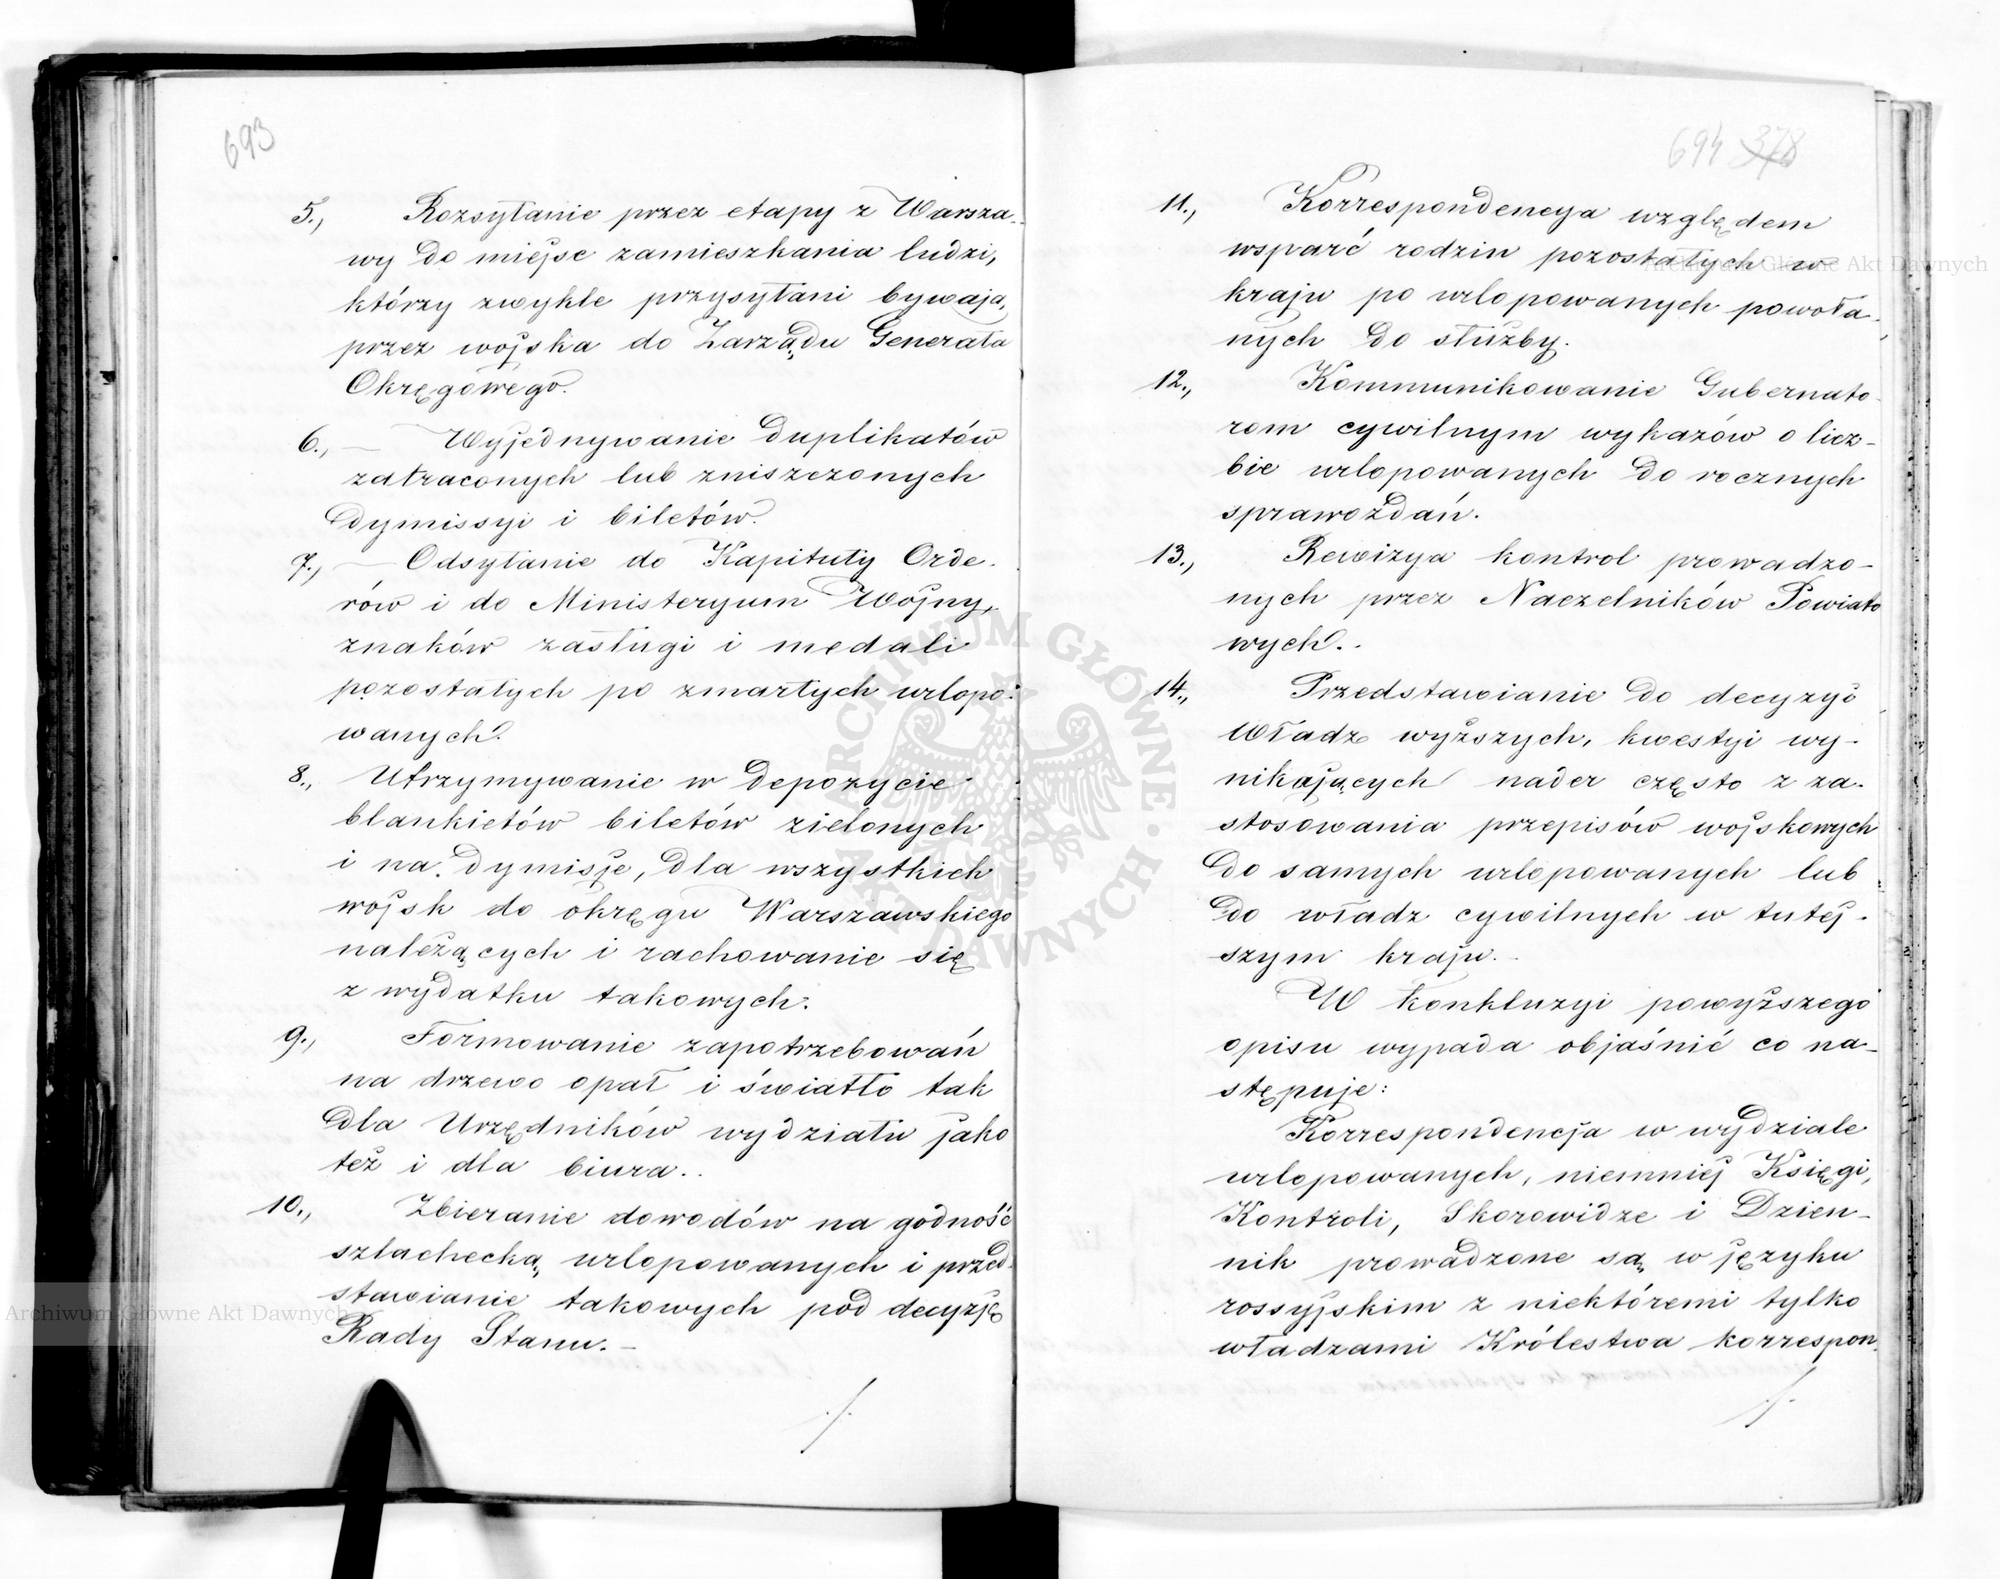 693
5., Rozsyłanie przez etapy z Warsza-
wy do miejsc zamieszkania ludzi,
którzy zwykle przysyłani bywają,
przez wojska do Zarządu Generała
Okręgowego.
6., — Wyjednywanie duplikatów
zatraconych lub zniszczonych
dymissyi i biletów.
7., — Odsyłanie do Kapituły Orde-
rów i do Ministeryum Wojny,
znaków zasługi i medali
pozostałych po zmarłych urlopo-
wanych.
8., Utrzymywanie w depozycie
blankietów biletów zielonych
i na dymisje, dla wszystkich
wojsk do okręgu Warszawskiego
należących i rachowanie się
z wydatku takowych.
9., Formowanie zapotrzebowań
na drzewo opał i światło tak
dla Urzędników wydziału jako
też i dla biura..
10., Zbieranie dowodów na godność
szlachecką, urlopowanych i przed-
stawianie takowych pod decyzję
Rady Stanu. —
./.
694 378
11., Korrespondencya względem
wsparć rodzin pozostałych w
kraju po urlopowanych powoła-
nych do służby.
12., Kommunikowanie Gubernato-
rom cywilnym wykazów o licz-
bie urlopowanych do rocznych
sprawozdań.
13., Rewizya kontrol prowadzo-
nych przez Naczelników Powiato
wych..
14., Przedstawianie do decyzyi
Władz wyższych, kwestyi wy-
nikających nader często z za-
stosowania przepisów wojskowych
do samych urlopowanych lub
do władz cywilnych w tutej-
szym kraju. -
W konkluzyi powyższego
opisu wypada objaśnić co na-
stępuje:
Korrespondencja w wydziale
urlopowanych, niemniej Księgi,
Kontroli, Skorowidze i Dzien-
nik prowadzone są w języku
rossyjskim z niektóremi tylko
władzami Królestwa korrespon-
./.
Archiwum Główne Akt Dawnych
Archiwum Główne Akt Dawnych
ARCHIWUM GŁÓWNE · AKT DAWNYCH ·